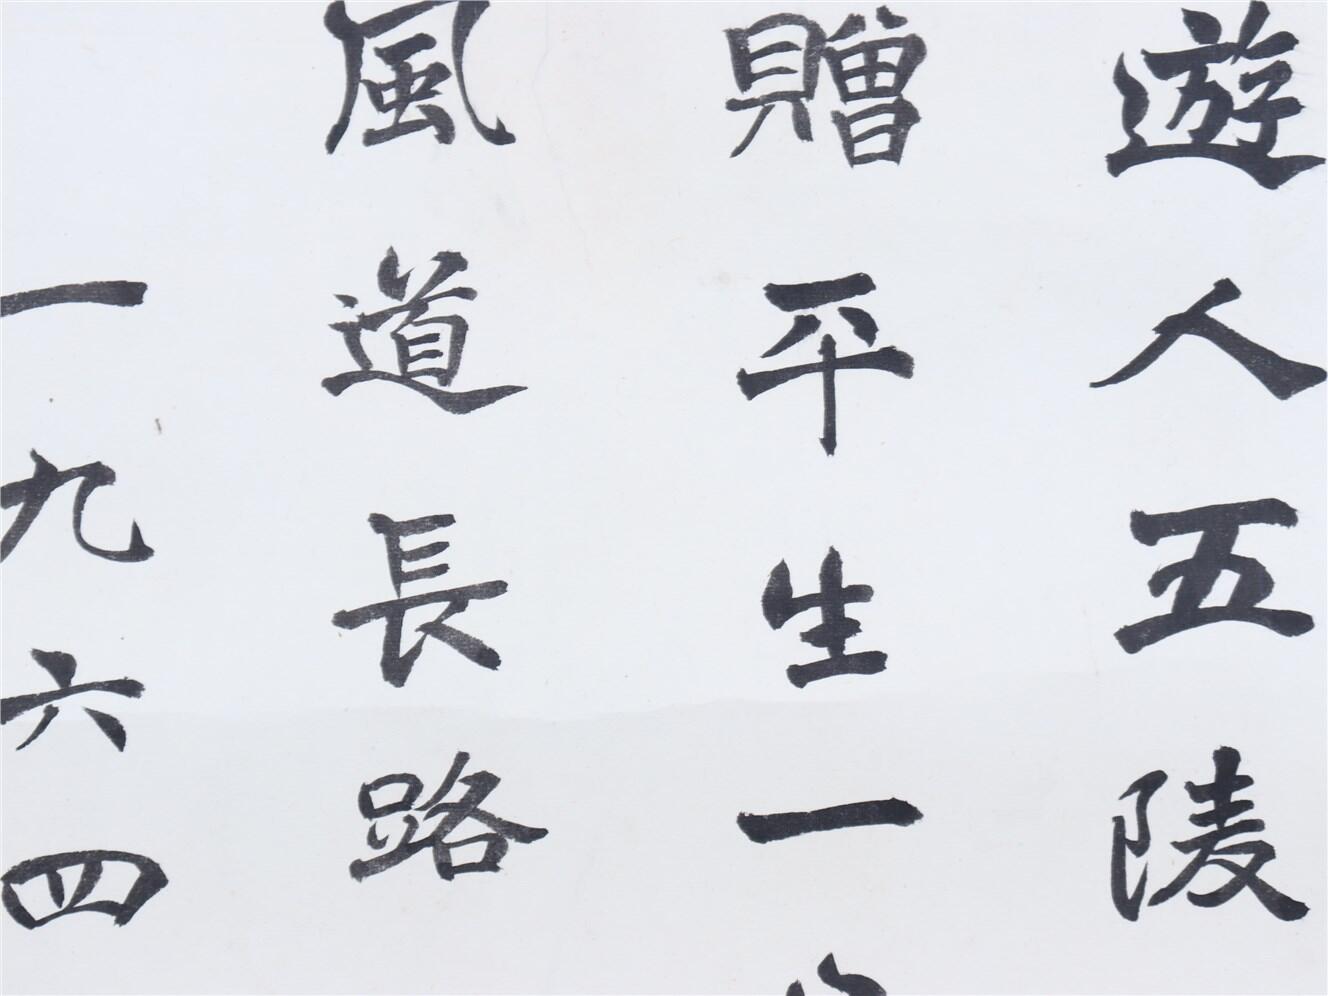 遊人五陵
贈平生一
風道長路
一九六四